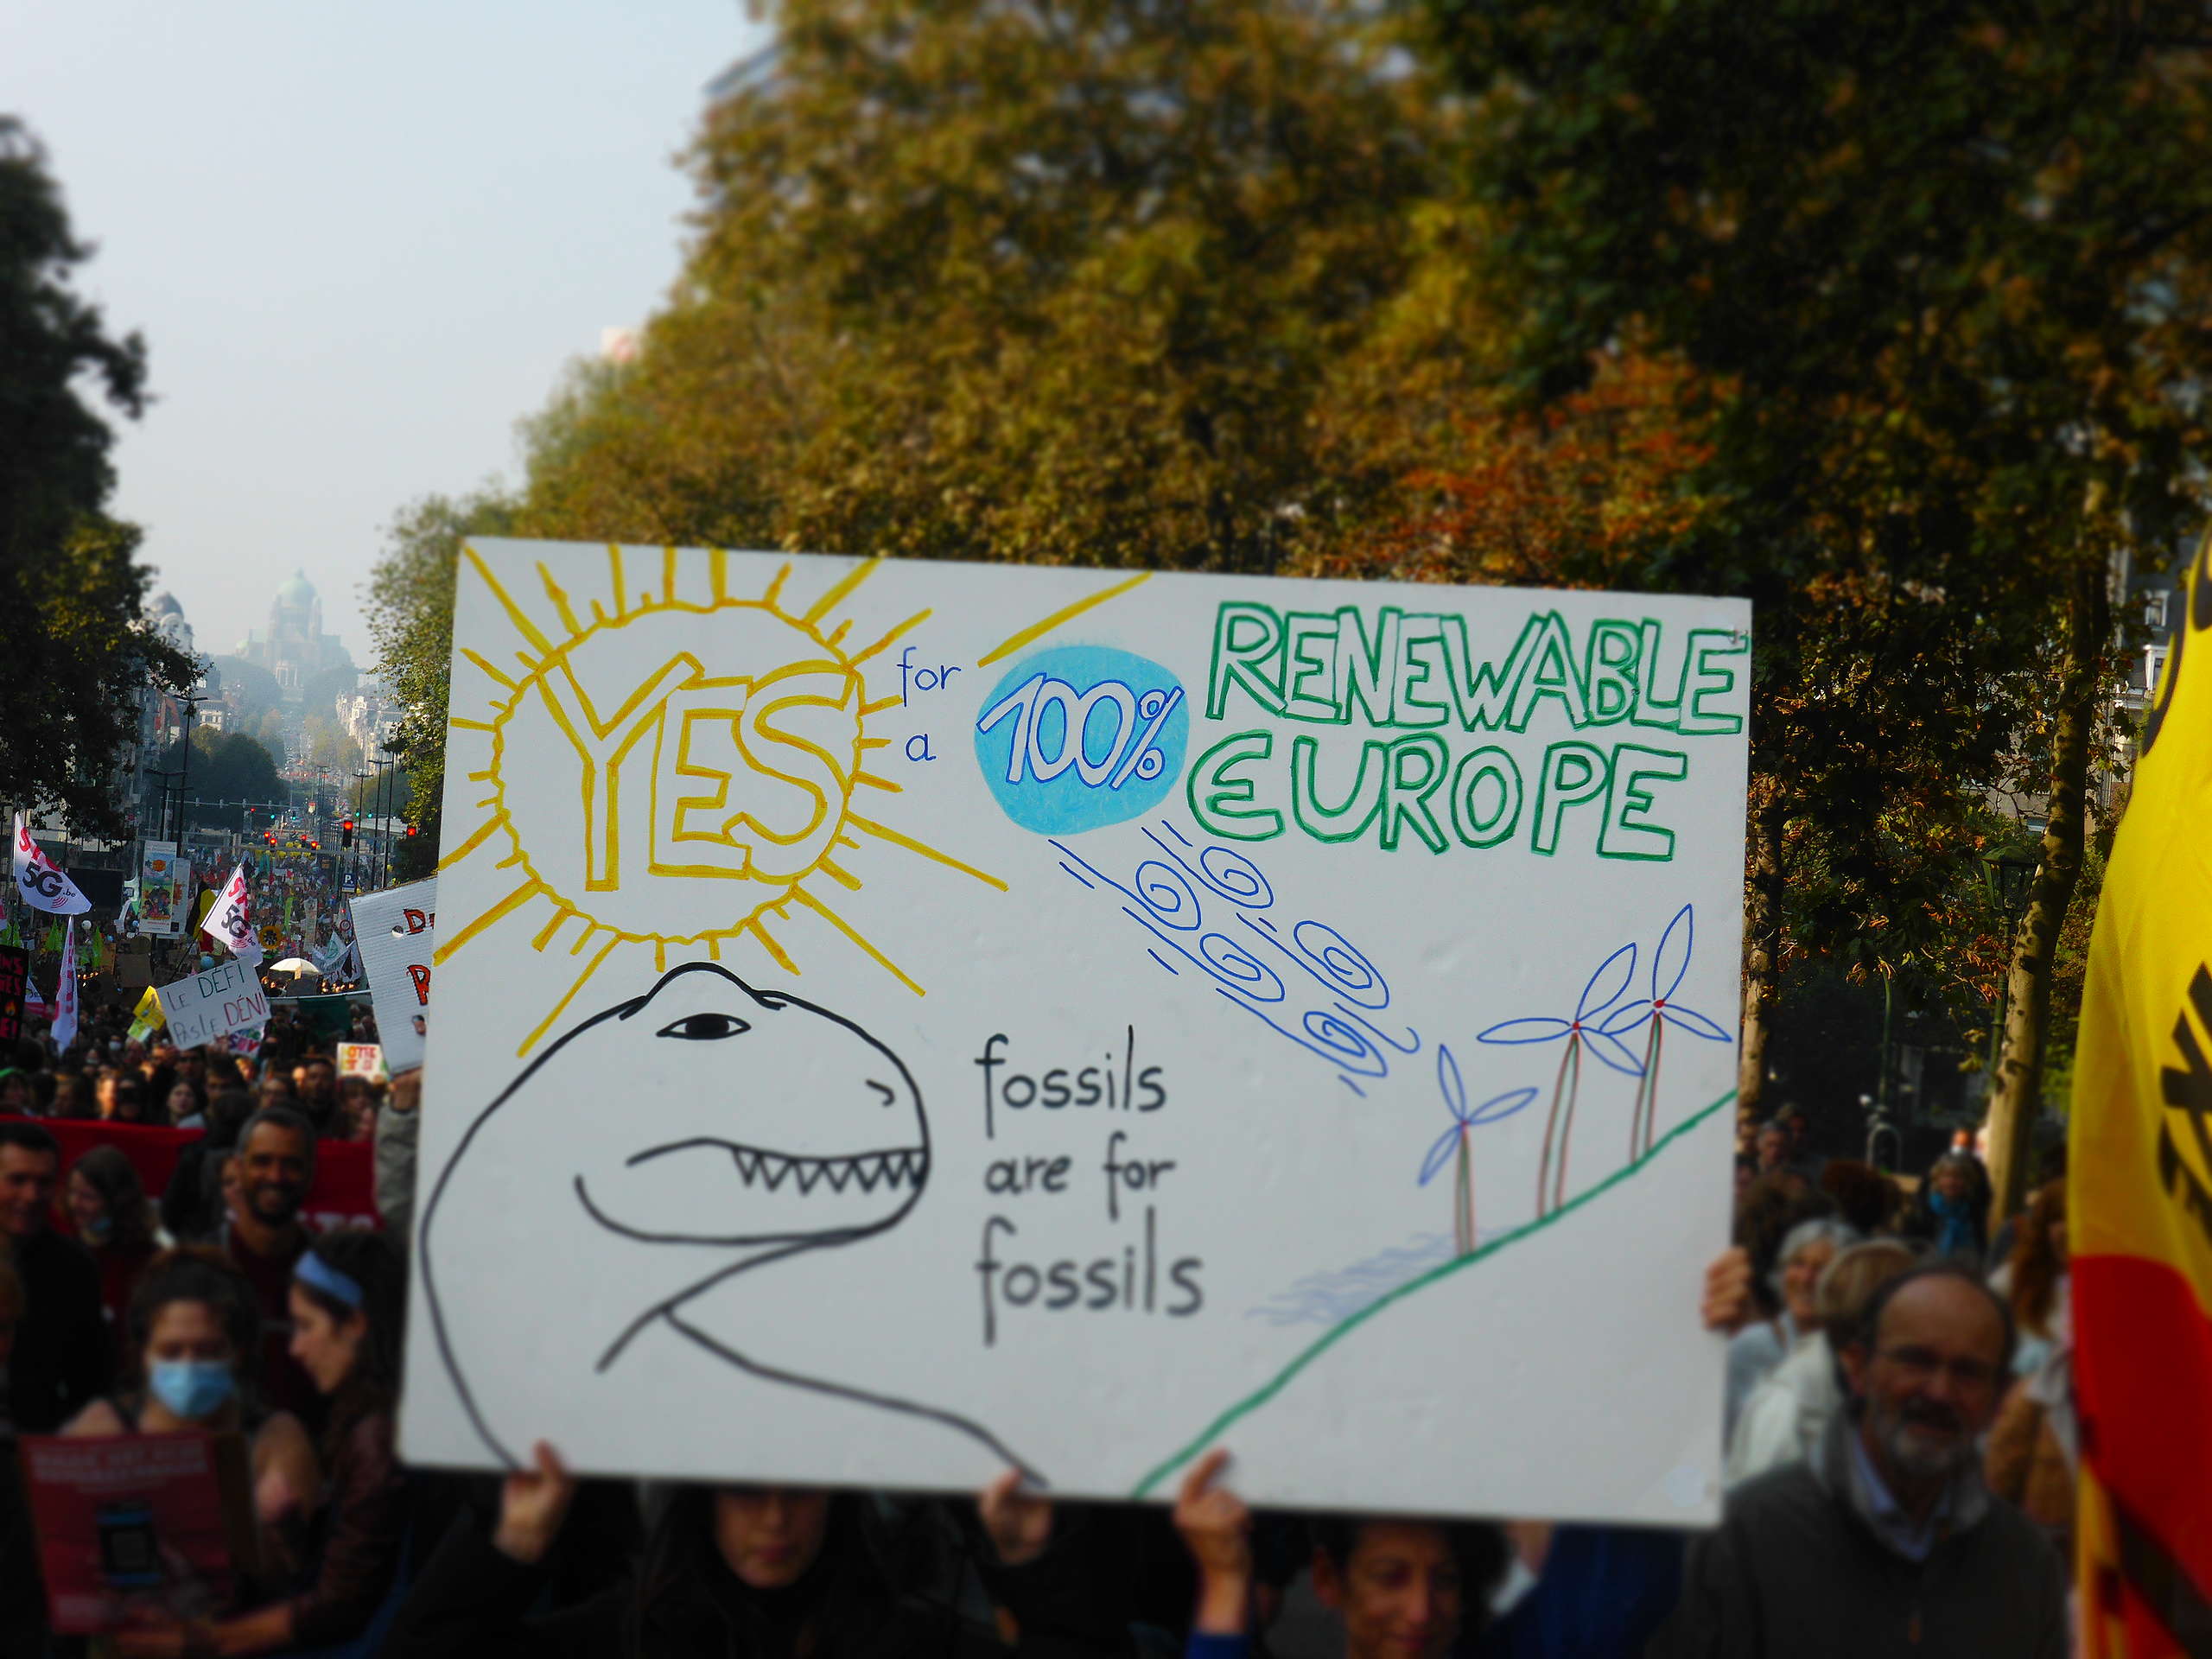 YES for a 100% RENEWABLE
EUROPE
fossils
are for
fossils
5G.be
5G
LE DÉFI
PAS LE DÉNI